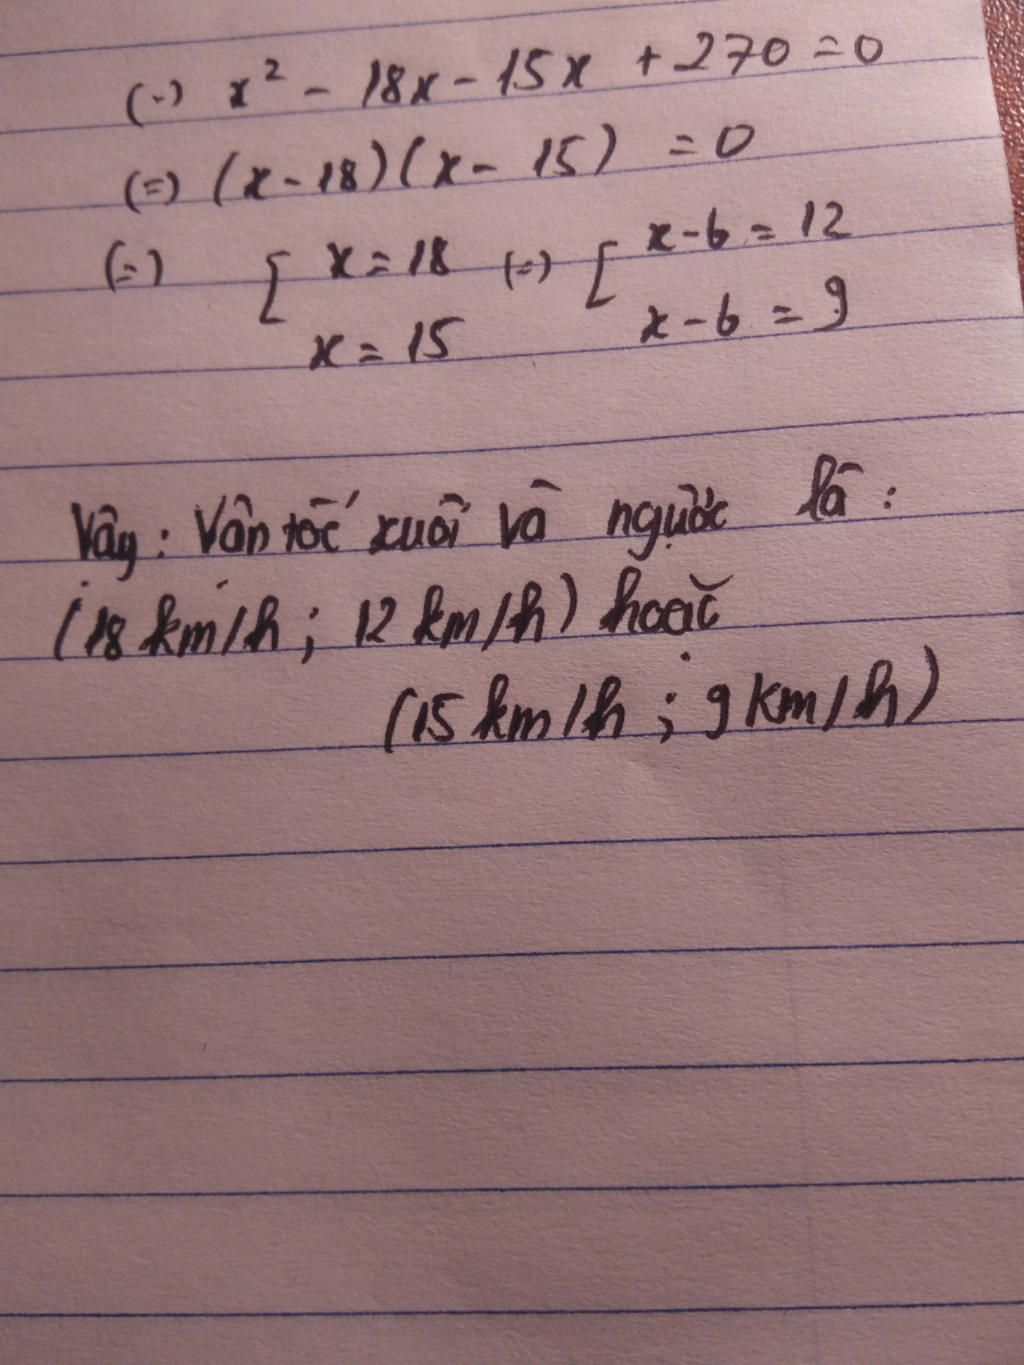 (=) x² - 18x - 15x + 270 = 0
(=) (x - 18)(x - 15) = 0
(=) [ x = 18 (=) [ x - 6 = 12
x = 15 x - 6 = 9
Vậy: Vận tốc xuôi và ngược là:
(18 km/h; 12 km/h) hoặc
(15 km/h; 9 km/h)